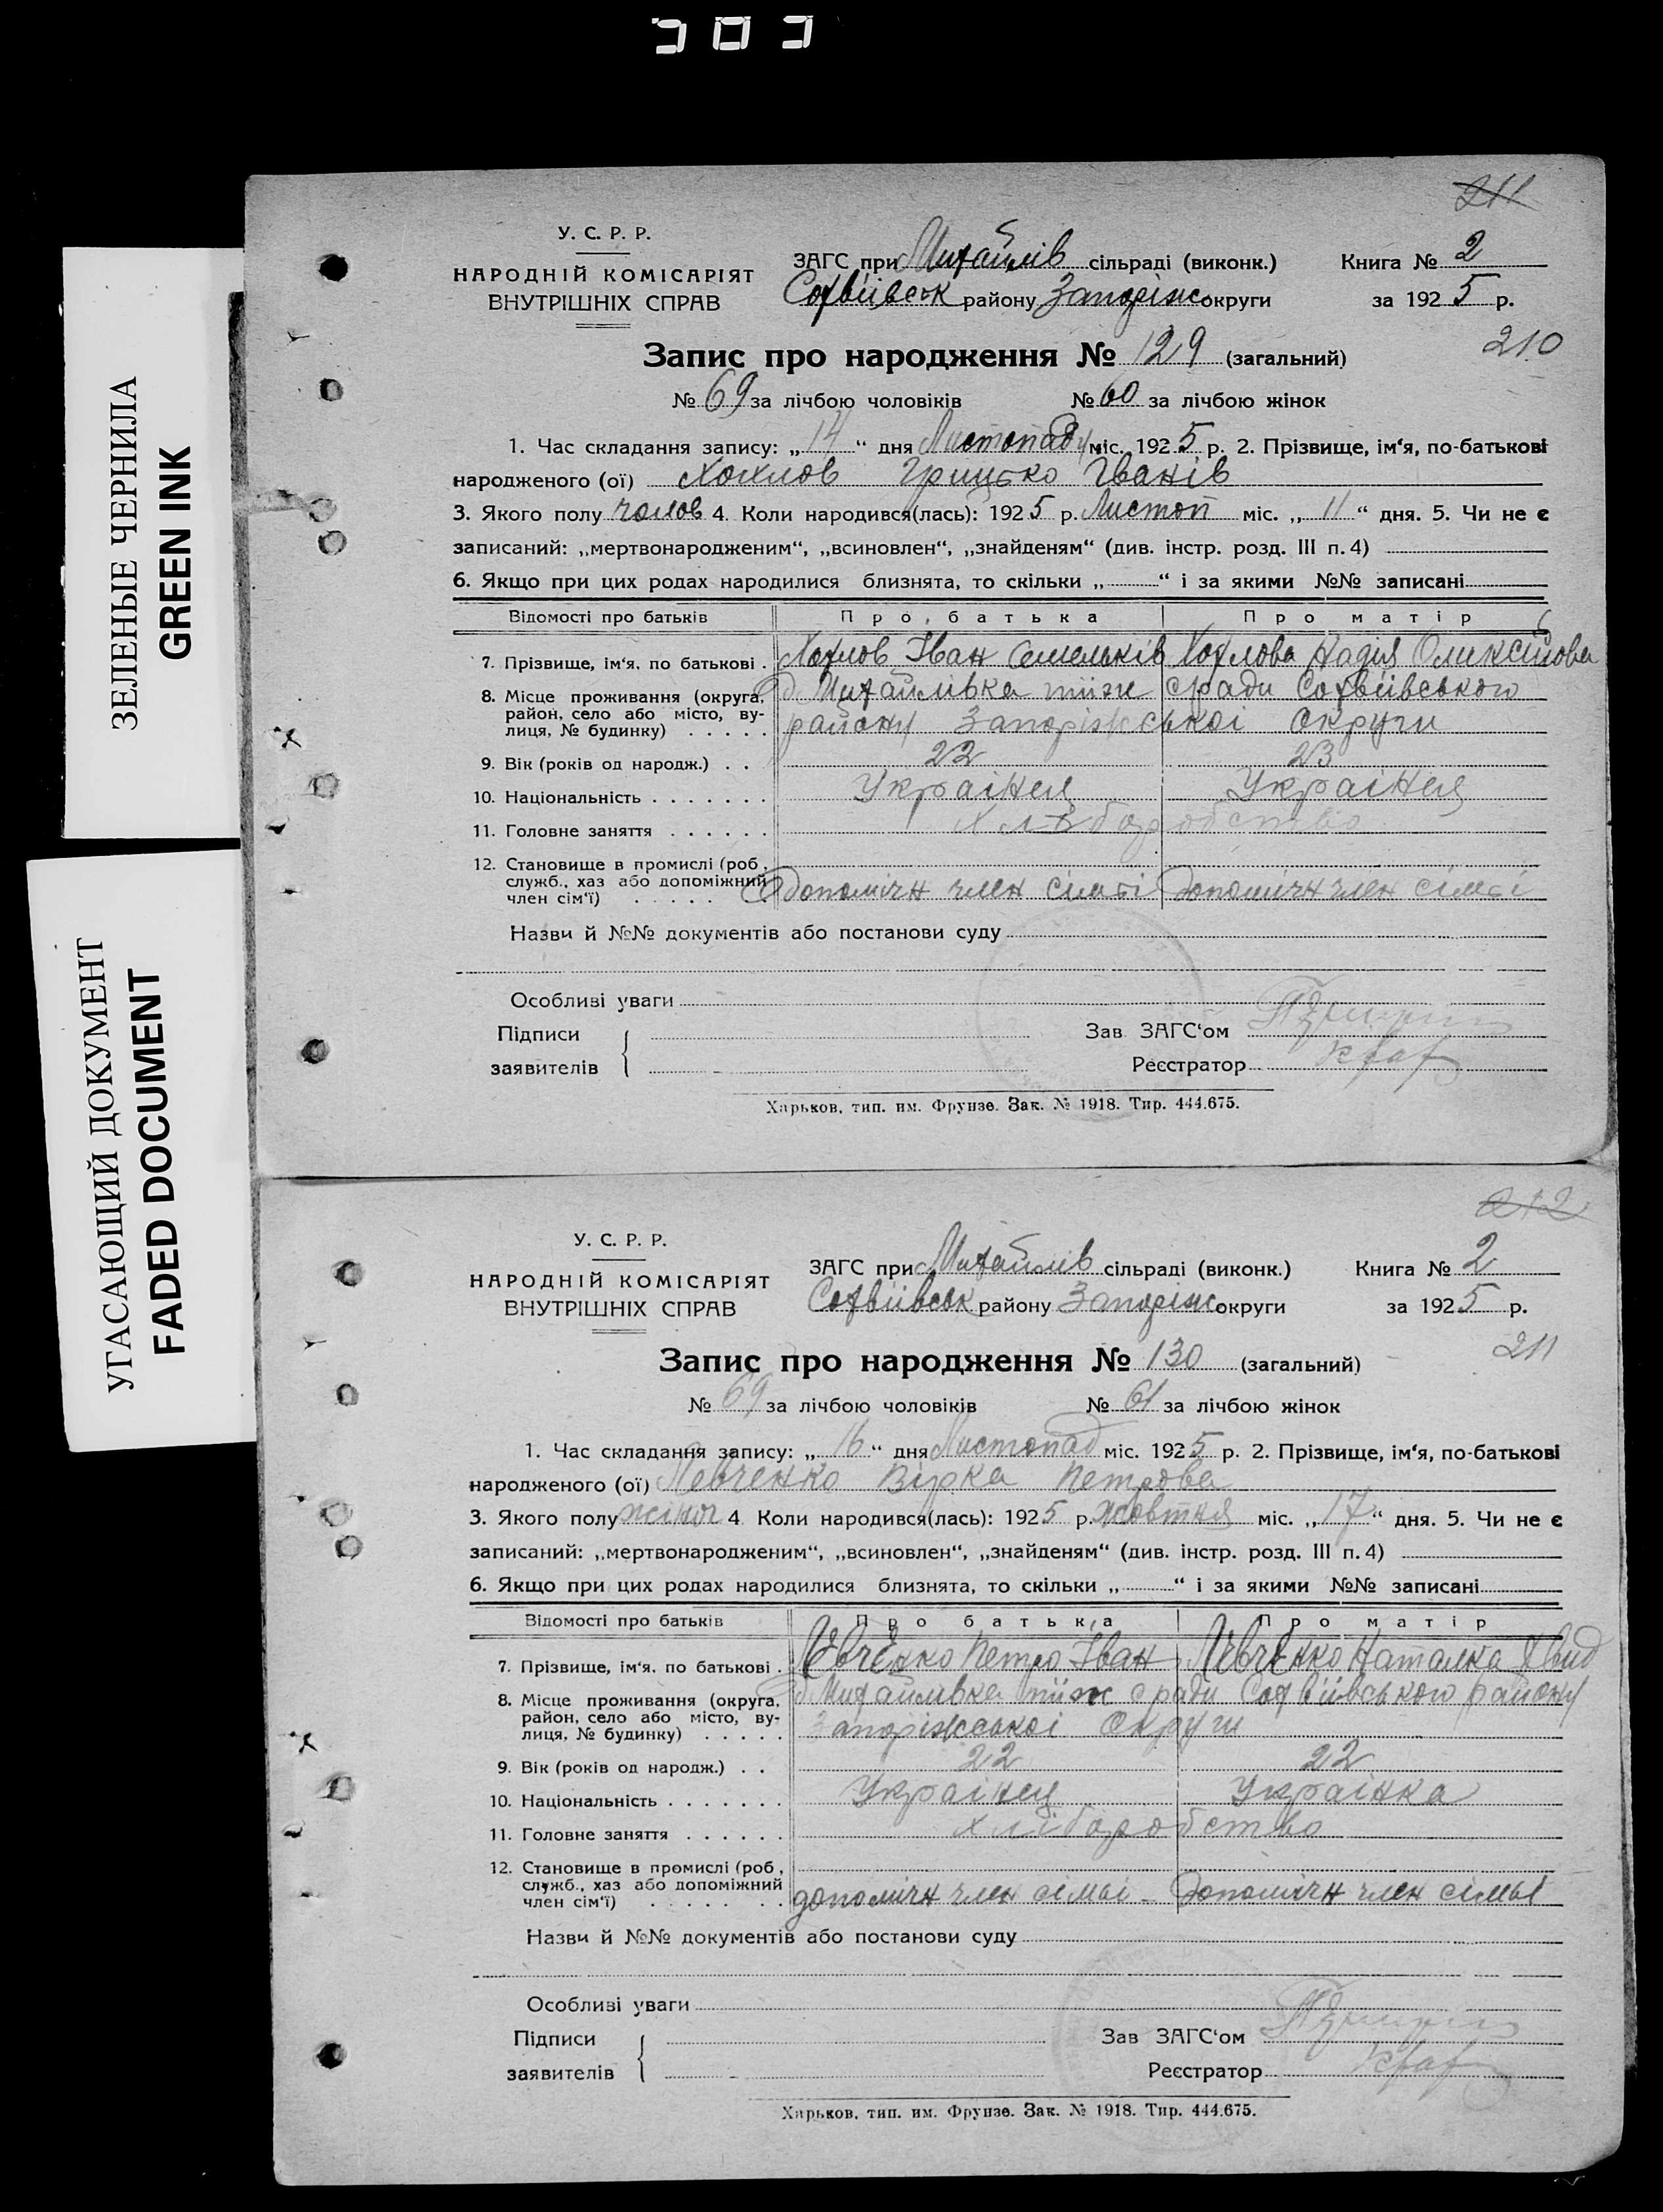 ЗЕЛЕНЫЕ ЧЕРНИЛА
GREEN INK
УГАСАЮЩИЙ ДОКУМЕНТ
FADED DOCUMENT
211
У. С. Р. Р.
НАРОДНІЙ КОМІСАРІЯТ
ВНУТРІШНІХ СПРАВ
ЗАГС при Михайлів сільраді (виконк.) Книга № 2
Софіївськ району Запоріж округи за 1925 р.
Запис про народження № 129 (загальний) 210
№ 69 за лічбою чоловіків № 60 за лічбою жінок
1. Час складання запису: „14“ дня Листопаду міс. 1925 р. 2. Прізвище, ім‘я, по-батькові
народженого (ої) Хохлов Грицько Іванів
3. Якого полу чолов 4. Коли народився(лась): 1925 р. Листоп міс. „11“ дня. 5. Чи не є
записаний: „мертвонародженим“, „всиновлен“, „знайденям“ (див. інстр. розд. III п. 4)
6. Якщо при цих родах народилися близнята, то скільки „ “ і за якими №№ записані
Відомості про батьків Про батька Про матір
7. Прізвище, ім‘я, по батькові . Хохлов Іван Хохлова Надія Оликсійова
8. Місце проживання (округа, Михайлівка тіїж с/ради Софіївського
район, село або місто, ву- району Запоріжської Округи
лиця, № будинку) . . . . .
9. Вік (років од народж.) . . 22 23
10. Національність . . . . . . . Українец Українец
11. Головне заняття . . . . . . Хліборобство
12. Становище в промислі (роб.,
служб., хаз або допоміжний допомічн член сімьі допомічн член сімьі
член сім‘ї) . . . . .
Назви й №№ документів або постанови суду
Особливі уваги
Підписи Зав ЗАГС‘ом
заявителів Реєстратор
Харьков, тип. им. Фрунзе. Зак. № 1918. Тир. 444.675.
212
У. С. Р. Р.
НАРОДНІЙ КОМІСАРІЯТ
ВНУТРІШНІХ СПРАВ
ЗАГС при Михайлів сільраді (виконк.) Книга № 2
Софіївськ району Запоріж округи за 1925 р.
Запис про народження № 130 (загальний) 211
№ 69 за лічбою чоловіків № 61 за лічбою жінок
1. Час складання запису: „16“ дня Листопад міс. 1925 р. 2. Прізвище, ім‘я, по-батькові
народженого (ої) Левченко Вірка Петрова
3. Якого полу жіноч 4 Коли народився(лась): 1925 р. Жовтня міс. „17“ дня. 5. Чи не є
записаний: „мертвонародженим“, „всиновлен“, „знайденям“ (див. інстр. розд. III п. 4)
6. Якщо при цих родах народилися близнята, то скільки „ “ і за якими №№ записані
Відомості про батьків Про батька Про матір
7. Прізвище, ім‘я, по батькові . Левченко Петро Іван Левченко Наталка
8. Місце проживання (округа, Михайлівка тіїж с ради Софіївського району
район, село або місто, ву- Запоріжської Округи
лиця, № будинку) . . . . .
9. Вік (років од народж.) . . 22 22
10. Національність . . . . . . . Українец Українка
11. Головне заняття . . . . . . Хліборобство
12. Становище в промислі (роб.,
служб., хаз або допоміжний допомічн член сімьі допомічн член сімьі
член сім‘ї) . . . . .
Назви й №№ документів або постанови суду
Особливі уваги
Підписи Зав ЗАГС‘ом
заявителів Реєстратор
Харьков, тип. им. Фрунзе. Зак. № 1918. Тир. 444.675.